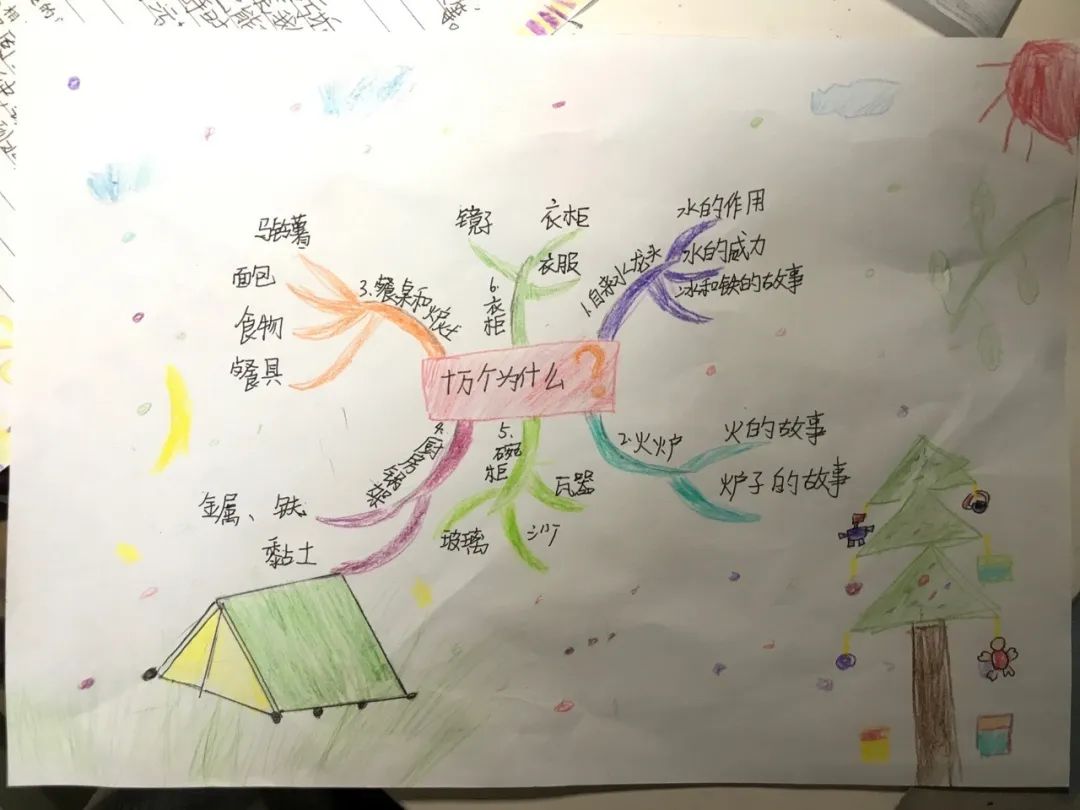 十万个为什么?
1.自来水龙头
水的作用
水的威力
冰和铁的故事
2.火炉
火的故事
炉子的故事
3.餐桌和炉灶
马铃薯
面包
食物
餐具
4.厨房锅架
金属、铁
黏土
5.碗柜
瓦器
玻璃
6.衣柜
镜子
衣柜
衣服